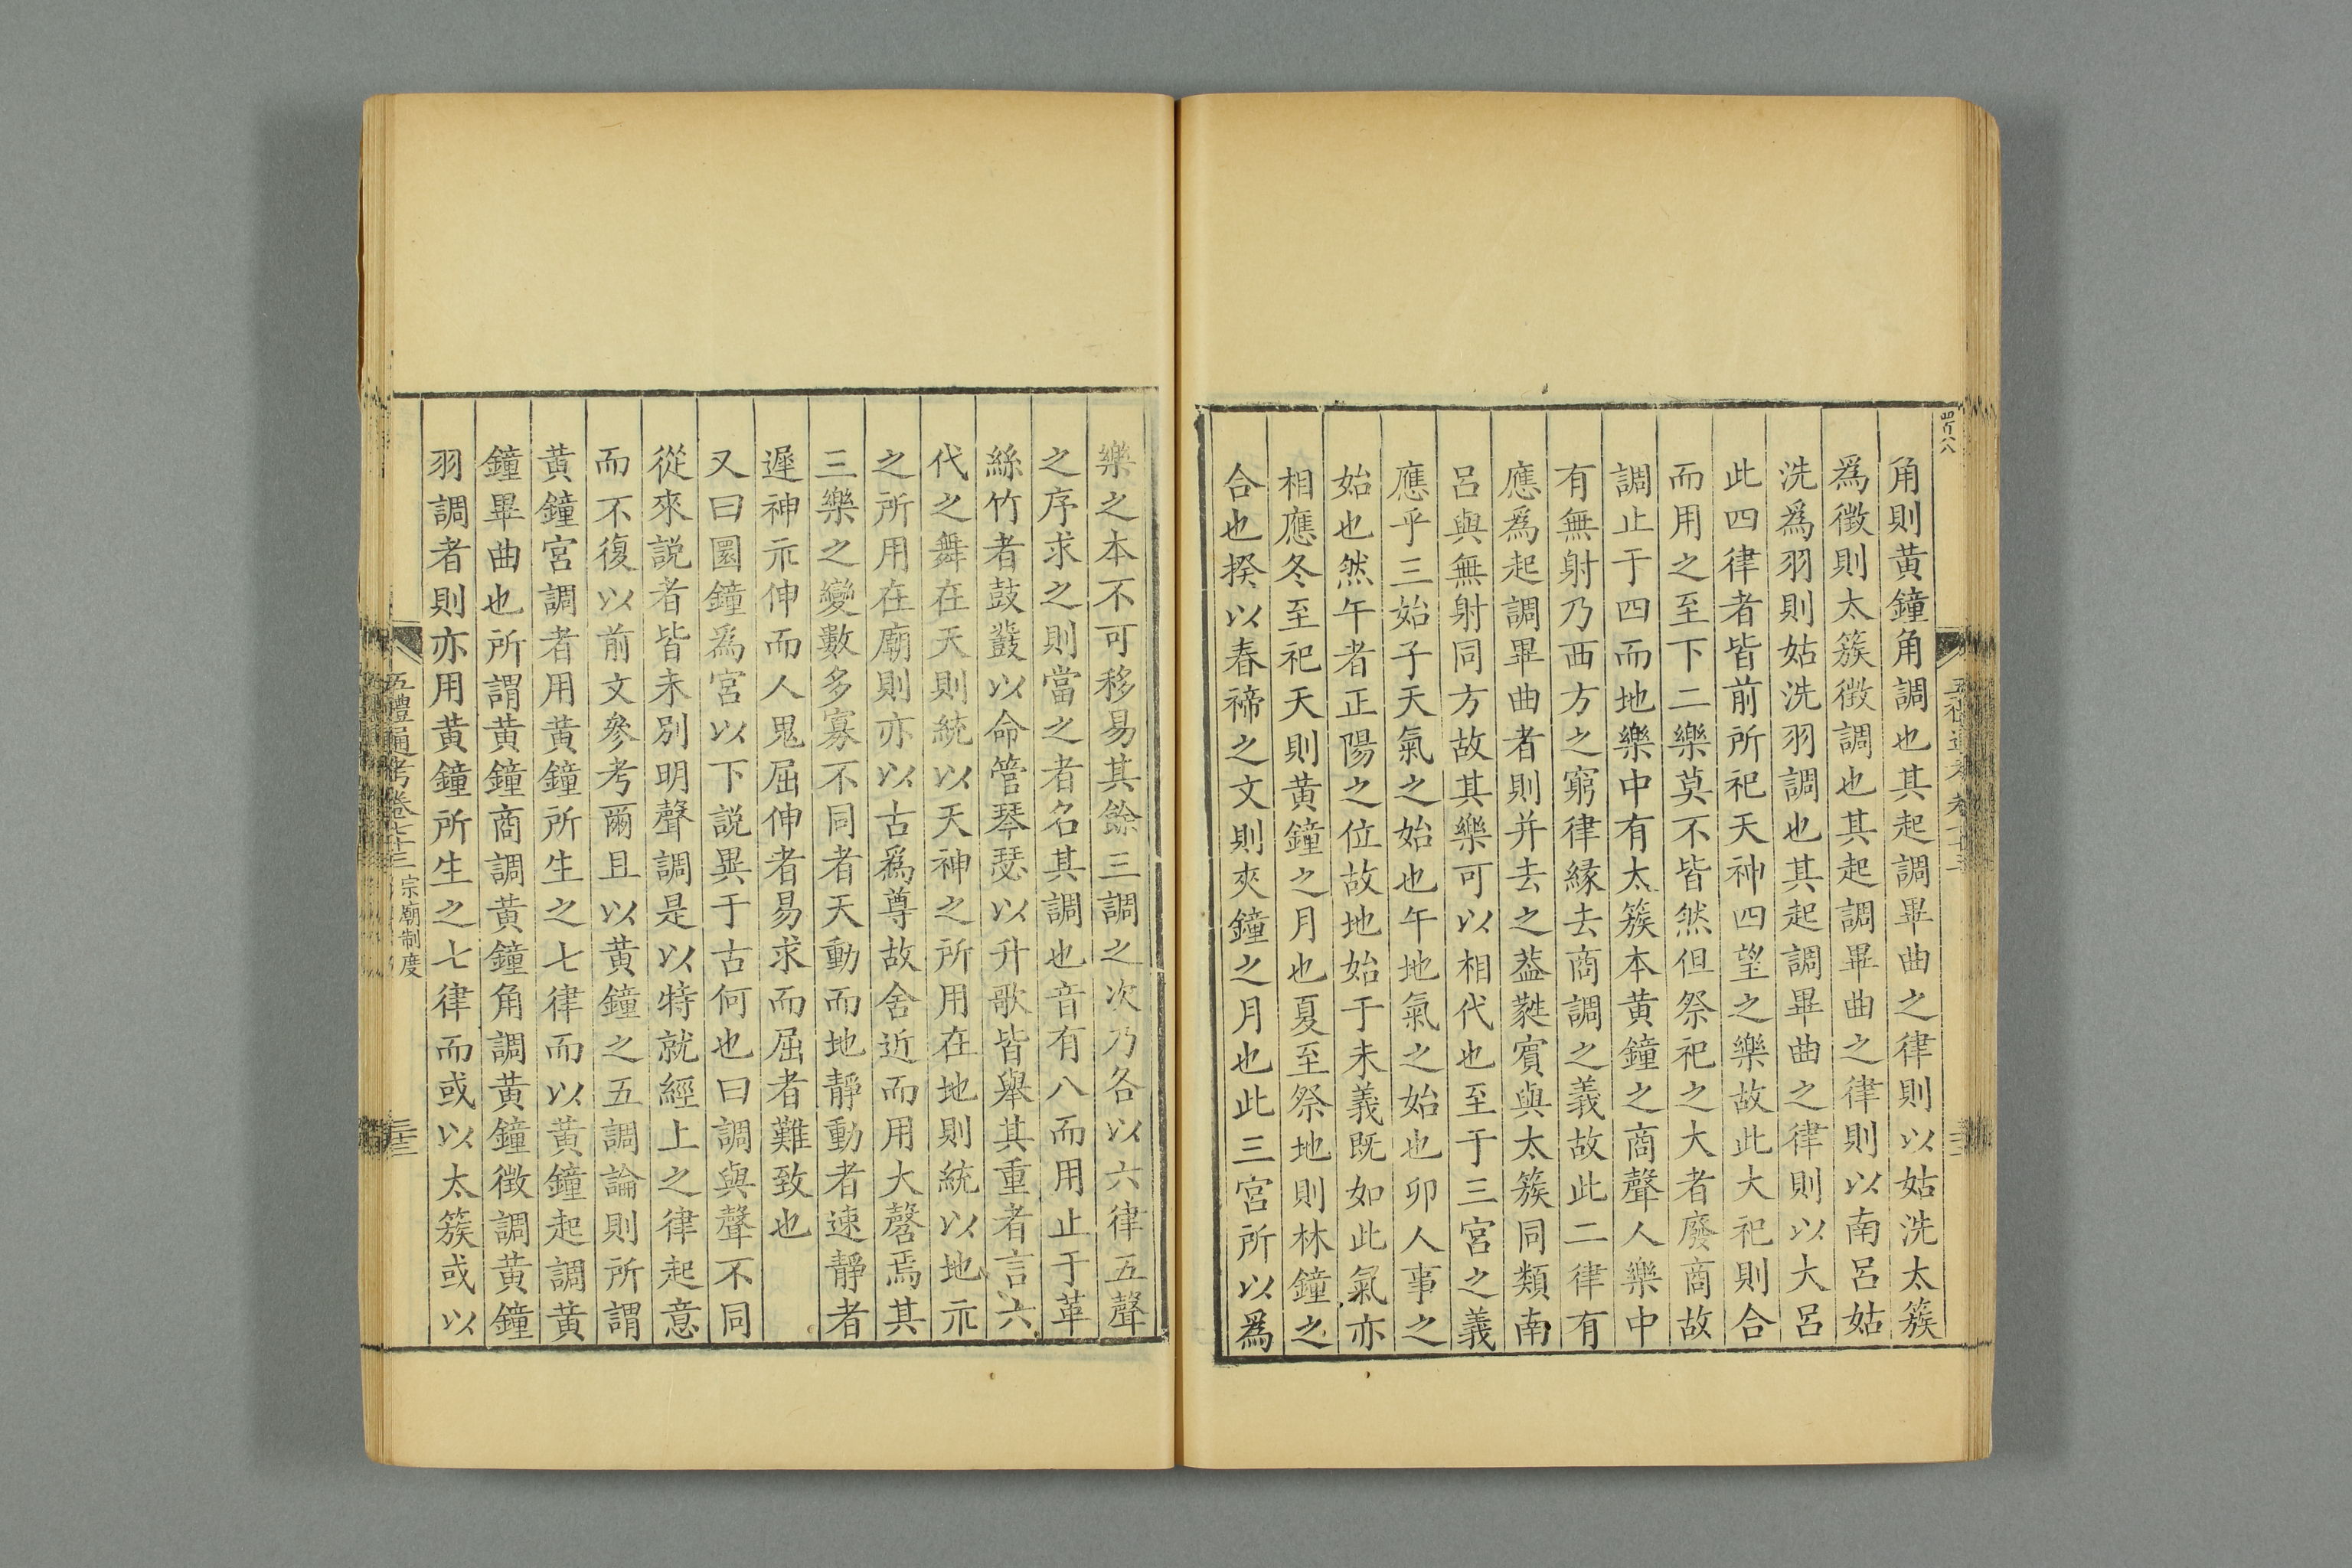 角則黃鐘角調也其起調畢曲之律則以姑洗太簇
爲徵則太簇徵調也其起調畢曲之律則以南呂姑
洗爲羽則姑洗羽調也其起調畢曲之律則以大呂
此四律者皆前所祀天神四望之樂故此大祀則合
而用之至下二樂莫不皆然但祭祀之大者廢商故
調止于四而地樂中有太簇本黃鐘之商聲人樂中
有無射乃西方之窮律緣去商調之義故此二律有
應爲起調畢曲者則并去之葢蕤賓與太簇同類南
呂與無射同方故其樂可以相代也至于三宮之義
應乎三始子天氣之始也午地氣之始也卯人事之
始也然午者正陽之位故地始于未義既如此氣亦
相應冬至祀天則黃鐘之月也夏至祭地則林鐘之
合也揆以春禘之文則夾鐘之月也此三宮所以爲
樂之本不可移易其餘三調之次乃各以六律五聲
之序求之則當之者名其調也音有八而用止于革
絲竹者鼓鼗以命管琴瑟以升歌皆舉其重者言六
代之舞在天則統以天神之所用在地則統以地示
之所用在廟則亦以古爲尊故舍近而用大磬焉其
三樂之變數多寡不同者天動而地靜動者速靜者
遲神示伸而人鬼屈伸者易求而屈者難致也
又曰圜鐘爲宮以下說異于古何也曰調與聲不同
從來説者皆未別明聲調是以特就經上之律起意
而不復以前文參考爾且以黃鐘之五調論則所謂
黃鐘宮調者用黃鐘所生之七律而以黃鐘起調黃
鐘畢曲也所謂黃鐘商調黃鐘角調黃鐘徵調黃鐘
羽調者則亦用黃鐘所生之七律而或以太簇或以
五禮通考卷七十三 宗廟制度